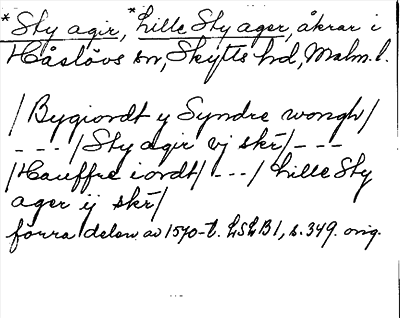 *Sty agir, *Lille Sty ager, åkrar i
Håslövs sn, Skytts hd, Malm. l.
/Bygiordt y Syndre wongh/
---/Sty agir vj skr̄/---
/Hauffre iordt/ ---/ Lille Sty
ager ij skr̄/
förra delen av 1570-t. LSLB1, s. 349. orig.